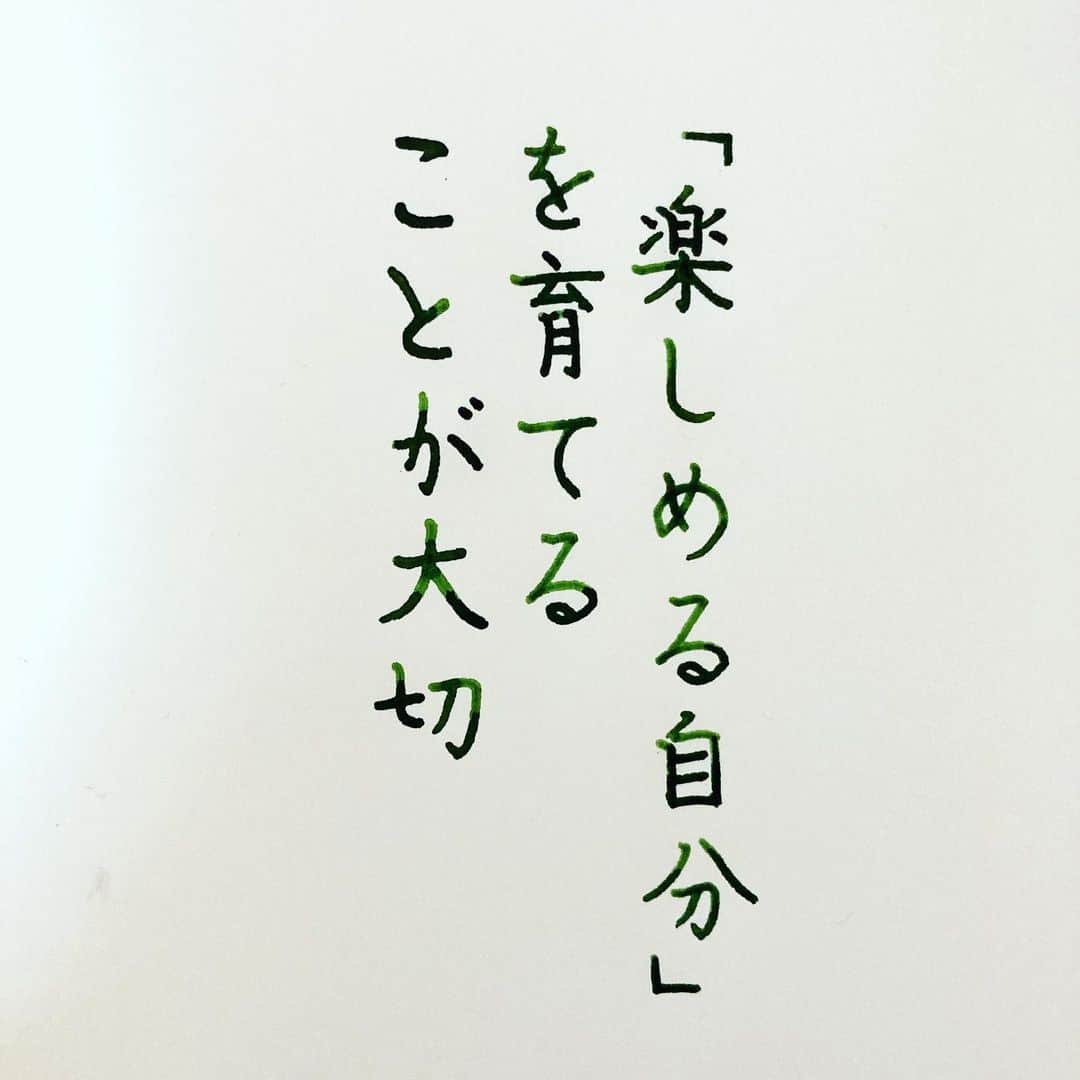 「楽しめる自分」
を育てる
ことが大切